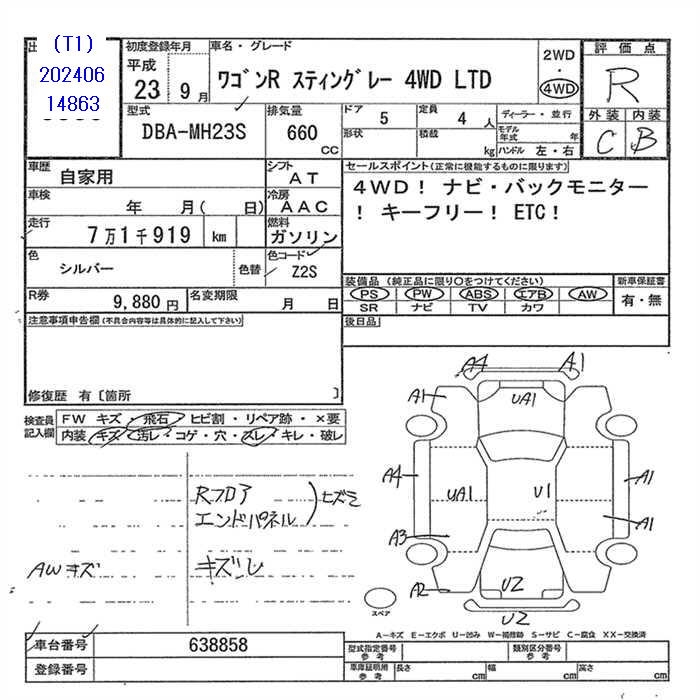 出
(T1)
202406
14863
初度登録年月
平成
23 9月
車名・グレード
ワゴンR スティングレー 4WD LTD
2WD
・
4WD
評価点
R
外装 内装
C B
型式
DBA-MH23S
排気量
660
CC
ドア
5
定員
4 人
ディーラー・並行
形状
積載
kg
モデル年式 年
ハンドル 左・右
車歴
自家用
シフト
AT
車検
年 月( 日)
冷房
AAC
走行
7万1千919 km
燃料
ガソリン
色
シルバー
色替
色コード
Z2S
R券
9,880 円
名変期限
月 日
セールスポイント(正常に機能するものに限ります)
4WD! ナビ・バックモニター
! キーフリー! ETC!
装備品 (純正品に限り○をつけてください)
新車保証書
PS PW ABS エアB AW
SR ナビ TV カワ
有・無
後日品
注意事項申告欄(不具合内容等は具体的に記入して下さい)
修復歴 有〔箇所 〕
検査員
記入欄
FW キズ・飛石・ヒビ割・リペア跡・×要
内装 キズ・汚レ・コゲ・穴・スレ・キレ・破レ
Rフロア
エンドパネル
ヒズミ
AWキズ
A4 A1
A1 UA1
A4 UA1 U1 A1
A1
A3
A2 U2
U2
スペア
A-キズ E-エクボ U-凹み W-補修跡 S-サビ C-腐食 XX-交換済
車台番号
638858
登録番号
型式指定番号
参考
類別区分番号
参考
車庫証明用
参考
長さ cm 幅 cm 高さ cm